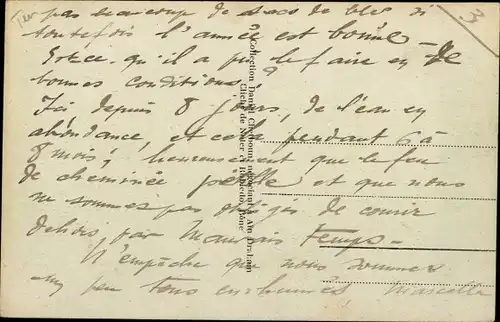 pas beaucoup de sacs de blé si
toutefois l'année est bonne
Est-ce qu'il a pu le faire en
bonnes conditions?
Ici depuis 8 jours, de l'eau en
abondance, et cela pendant 6 à
8 mois; heureusement que le feu
de cheminée pétille et que nous
ne sommes pas obligés de courir
dehors par mauvais temps -
N'empêche que nous sommes
un peu tous enrhumés, Marcelle
3
Collection Daniel Chebonni, négociant à Ain Draham
Cliché de Bône